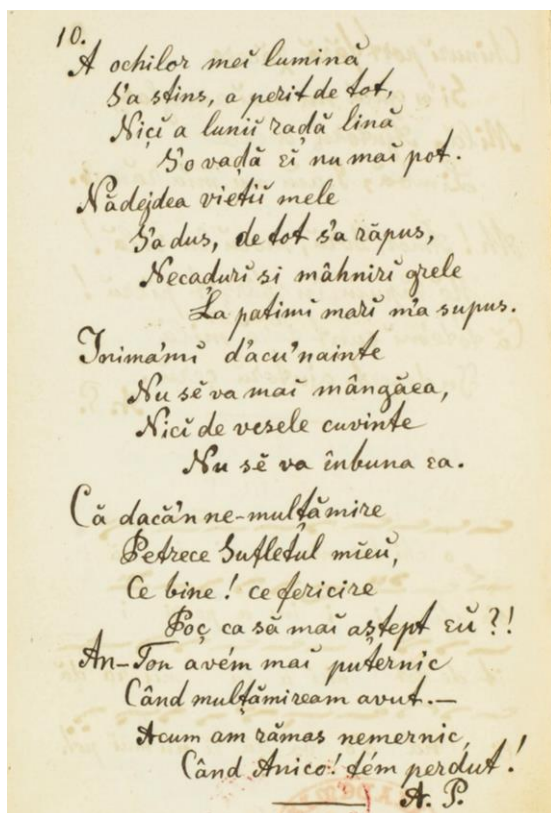 10.
A ochilor meĭ lumină
S'a stins, a perit de tot,
Nicĭ a luniĭ radă lină
S'o vadă eĭ nu maĭ pot.
Nădejdea vietiĭ mele
S'a dus, de tot s'a răpus,
Necadurĭ si mâhnirĭ grele
La patimĭ marĭ m'a supus.
Inima'mĭ d'acu'nainte
Nu sĕ va maĭ mângăea,
Nicĭ de vesele cuvinte
Nu sĕ va înbuna ea.
Că dacă'n ne-mulțămire
Petrece Sufletul mieŭ,
Ce bine! ce fericire
Poç ca să maĭ aștept eŭ?!
An-Ton avém maĭ puternic
Când mulțămiream avut.—
Acum am rămas nemernic,
Când Anico! tém perdut!
A. P.